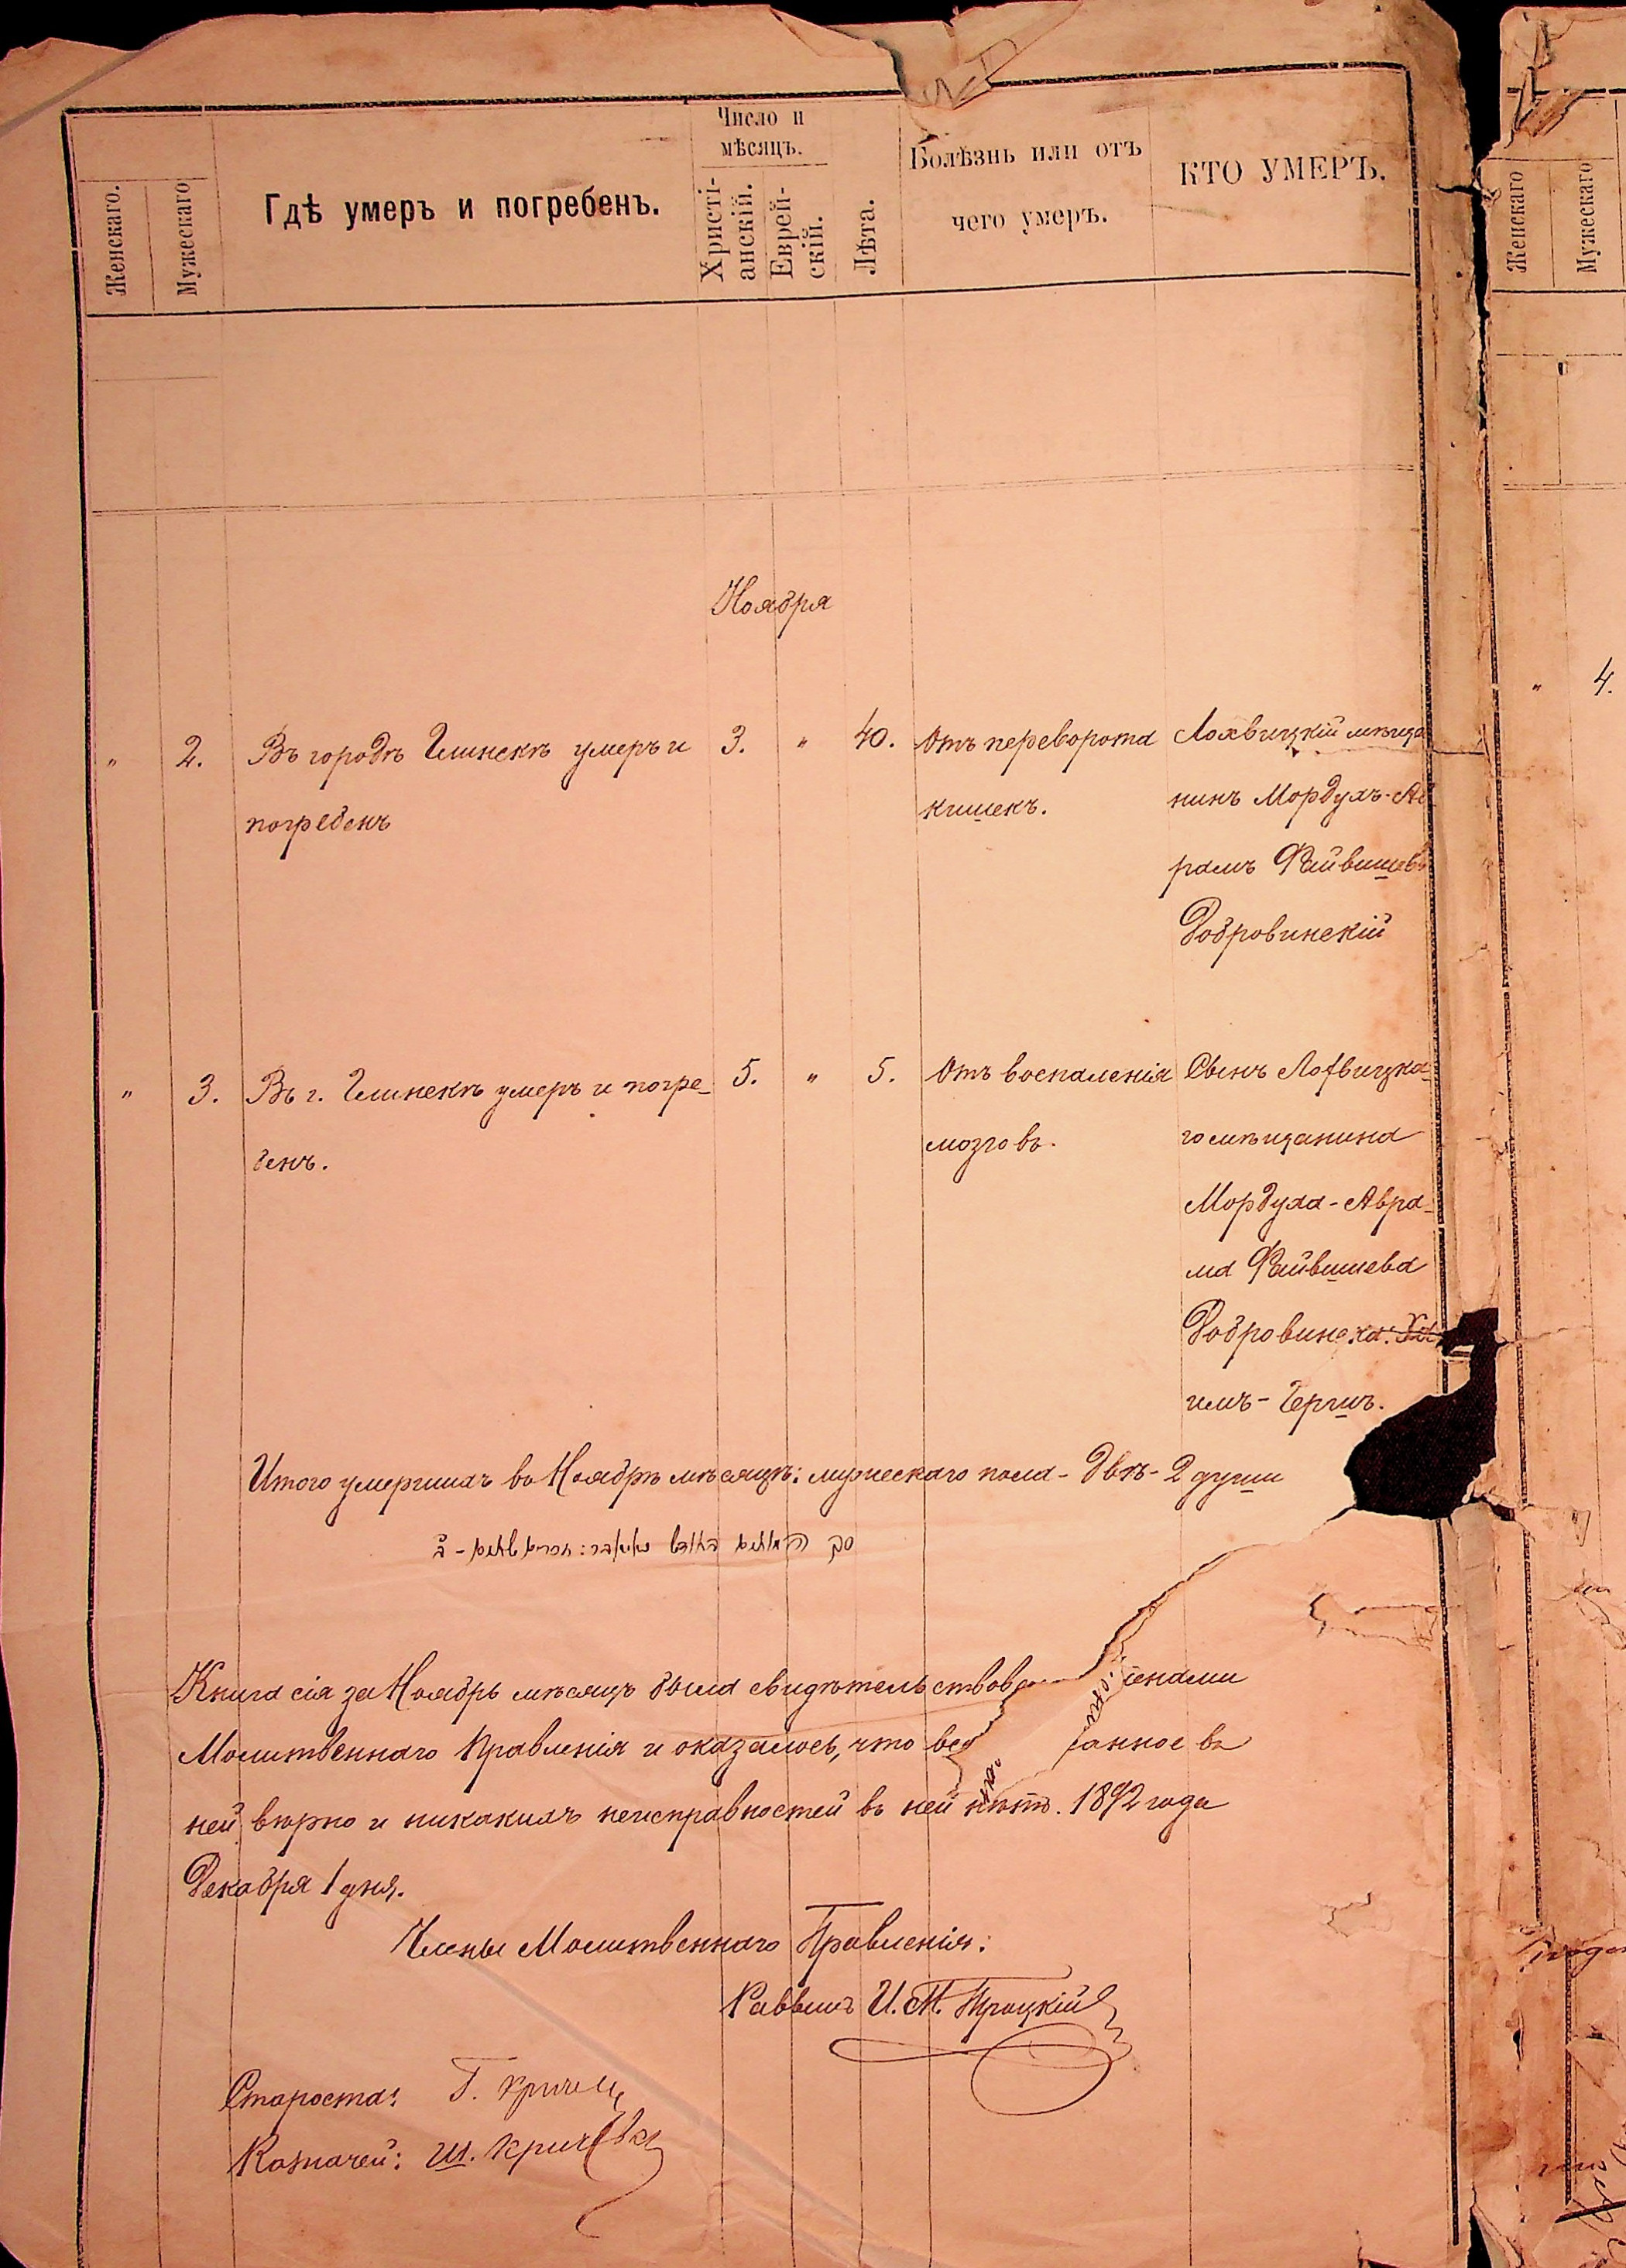 Женскаго.
Мужескаго
Гдѣ умеръ и погребенъ.
Число и
мѣсяцъ.
Христі-
анскій.
Еврей-
скій.
Лѣта.
Болѣзнь или отъ
чего умеръ.
КТО УМЕРЪ.
Ноября
„ 2. Въ городѣ Глинскѣ умеръ и 3. „ 40. Отъ переворота Лохвицкій мѣща
погребенъ кишекъ. нинъ Мордухъ-Ав
рамъ Файвишевъ
Добровинскій
„ 3. Въ г. Глинскѣ умеръ и погре- 5. „ 5. Отъ воспаленія Сынъ Лохвицка-
бенъ. мозговъ. го мѣщанина
Мордуха-Авра-
ма Файвишева
Добровинска:
имъ-Гершъ.
Итого умершихъ въ Ноябрѣ мѣсяцѣ: мужескаго пола - двѣ - 2 души
Книга сія за Ноябрь мѣсяцъ была свидѣтельствова ленами
Молитвеннаго Правленія и оказалось, что все санное въ
ней вѣрно и никакихъ неисправностей въ ней нѣтъ. 1892 года
Декабря 1 дня.
Члены Молитвеннаго Правленія:
Раввинъ И. М. Троцкій
Староста: Г. Криче
Казначей: Ш. Кричевск
Женскаго
Мужескаго
„ 4.